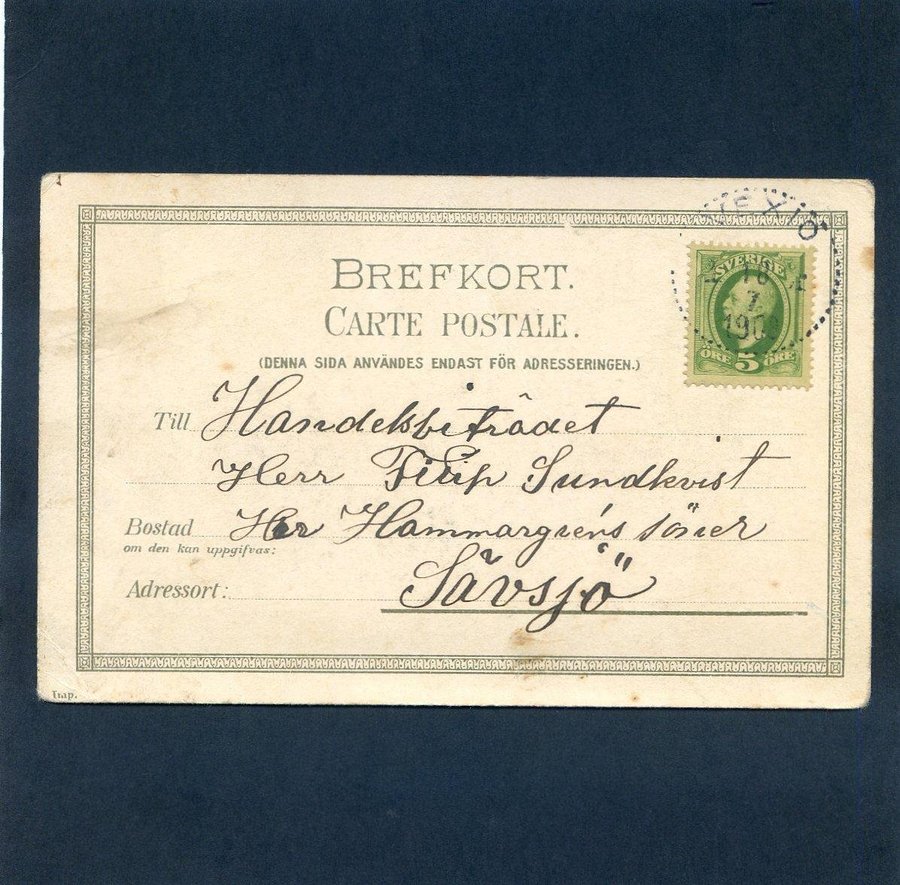 BREFKORT.
CARTE POSTALE.
(DENNA SIDA ANVÄNDES ENDAST FÖR ADRESSERINGEN.)
VEXIÖ
SVERIGE
10
7
190
ÖRE 5 ÖRE
Till Handelsbiträdet
Herr Filip Sundkvist
Bostad Her Hammargren's söner
om den kan uppgifvas:
Adressort: Sävsjö
Imp.